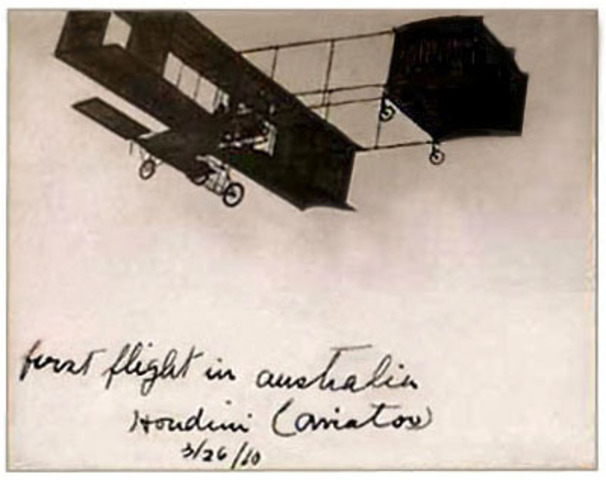 first flight in australia
Houdini (aviator)
3/26/10